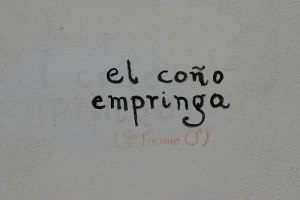 el coño
empringa